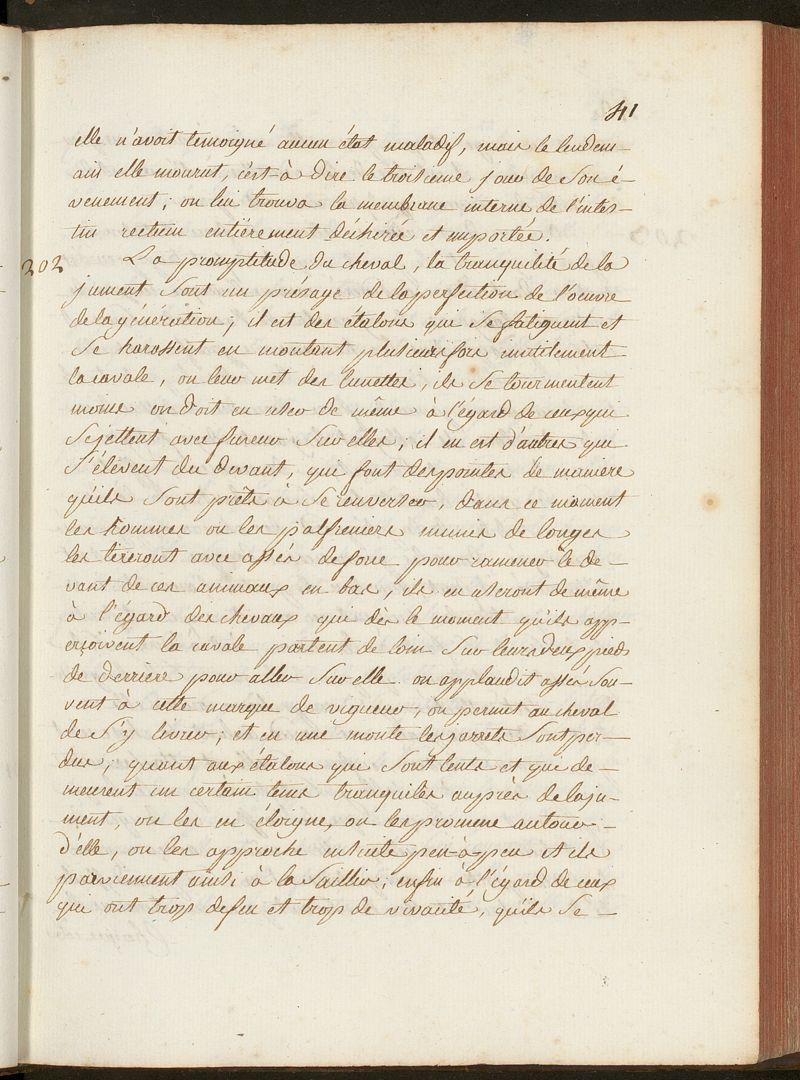 41
elle n'avoit temoigné aucun état maladif, mais le lendem-
ain elle mourut, c'est-à dire le troisieme jour de son é-
venement; on lui trouva la membrane interne de l'intes-
tin rectum entiérement déchirée et emportée.
202 La promptitude du cheval, la tranquilité de la
jument sont un présage de la perfection de l'oeuvre
de la génération; il est des étalons qui se fatiguent et
se harassent en montant plusieurs fois inutilement
la cavale, on leur met des lunettes, ils se tourmentent
moins on doit en user de même à l'égard de ceux qui
se jettent avec fureur sur elles; il en est d'autres qui
s'élèvent du devant, qui font des pointes de maniere
qu'ils sont prêts à se renverser, dans ce moment
les hommes ou les palfreniers munis de longes
les tireront avec assés de force pour ramener le de-
vant de ces animaux en bas, ils en useront de même
à l'égard des chevaux qui dès le moment qu'ils app-
erçoivent la cavale partent de loin sur leurs deux pieds
de derriere pour aller sur elle. on applaudit assés sou-
vent à cette marque de vigueur, on permet au cheval
de s'y livrer; et en une monte les jarrets sont per-
dus, quant aux étalons qui sont lents et qui de-
meurent un certain tems tranquiles auprès de la ju-
ment, on les en éloigne, on les promene autour-
d'elle, on les approche ensuite peu-à-peu et ils
parviennent ainsi à la saillir; enfin à l'égard de ceux
qui ont trop de feu et trop de vivacité, qu'ils se-